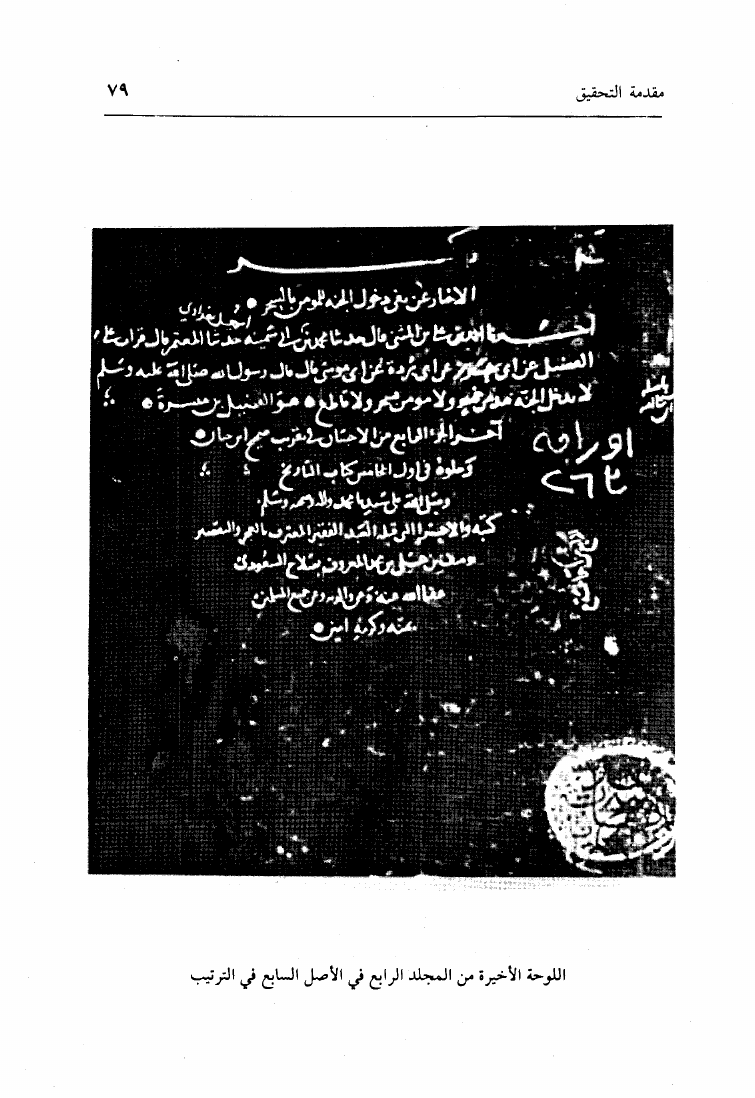 مقدمة التحقيق ٧٩
ذكر
الاخبار عن نفي دخول الجنة للمؤمن بالسحر
اخبرنا احمد بن علي بن المثنى قال حدثنا محمد بن ابي سمينة حدثنا المعتمر قال قرات على
الفضيل عن ابي عن ابي بردة عن ابي موسى قال قال رسول الله صلى الله عليه وسلم
لا يدخل الجنة ولا مومن بسحر ولا قاطع هو الفضيل بن ميسرة
اخر الجزء الرابع من الاحسان في تقريب صحيح ابن حبان
يتلوه في اول الخامس كتاب التاريخ
وصلى الله على سيدنا محمد واله وصحبه وسلم
كتبه العبد الفقير المعترف بالعجز والتقصير
يوسف بن المعروف بصلاح السعودي
عفا الله عنه وعن والديه وعن جميع المسلمين
بمنه وكرمه امين
اوراقه
٢٦٣
اللوحة الأخيرة من المجلد الرابع في الأصل السابع في الترتيب